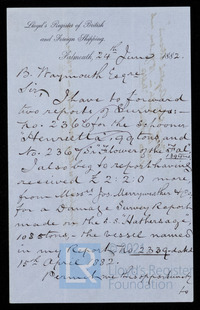 Lloyd's Register of British
and Foreign Shipping,
Falmouth, 24th June 1882.
B. Waymouth Esqre
Sir,
I have to forward
two reports of Surveys –
No. 2366 for the schooner
"Henrietta", 99 tons and
No. 2367 Sr "Flower of the Fal"
I also beg to report having
received £2:2:0 more
from Messrs Jos. Merryweather & Co
for a Damage Survey Report
made on the S.S. Hathersage,
1035 tons, – the vessel named
in my Report No. 2339 dated
15th April 1882.
Permit me this opportunity
to
Lloyd's Register
Foundation